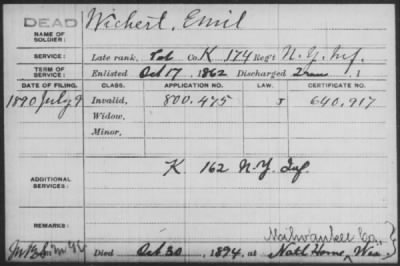 DEAD
Wichert, Emil
NAME OF SOLDIER:
SERVICE: Late rank, Co. K 174 Reg't N.Y. Inf.
TERM OF SERVICE: Enlisted Oct 17, 1862 Discharged , 1
DATE OF FILING. CLASS. APPLICATION NO. LAW. CERTIFICATE NO.
1890 July 9 Invalid, 800.475 J 640,917
Widow,
Minor,
ADDITIONAL SERVICES: K 162 N.Y. Inf.
REMARKS:
Milwaukee Co.,
Died Oct 30, 1894, at Natl Home, Wis